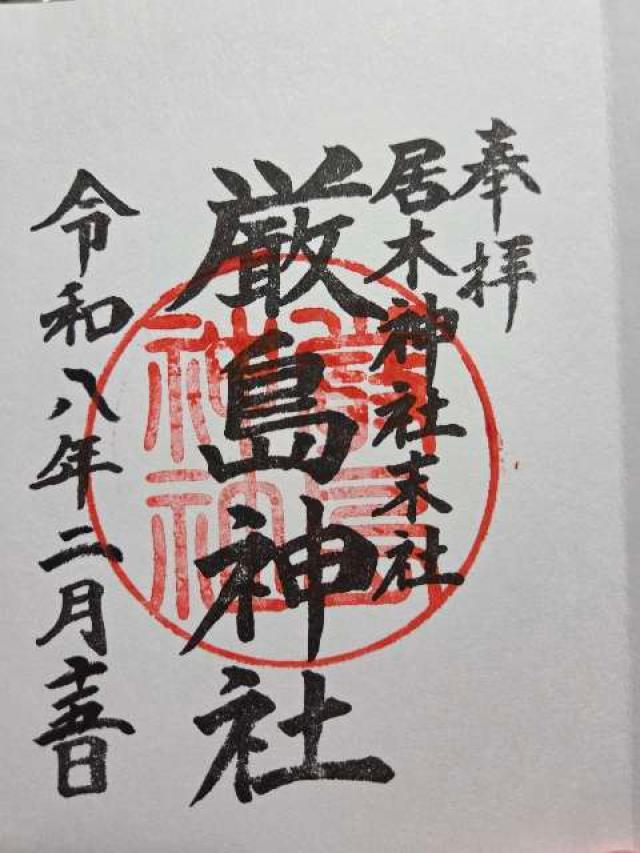 奉拝
居木神社末社
厳島神社
令和八年二月十五日